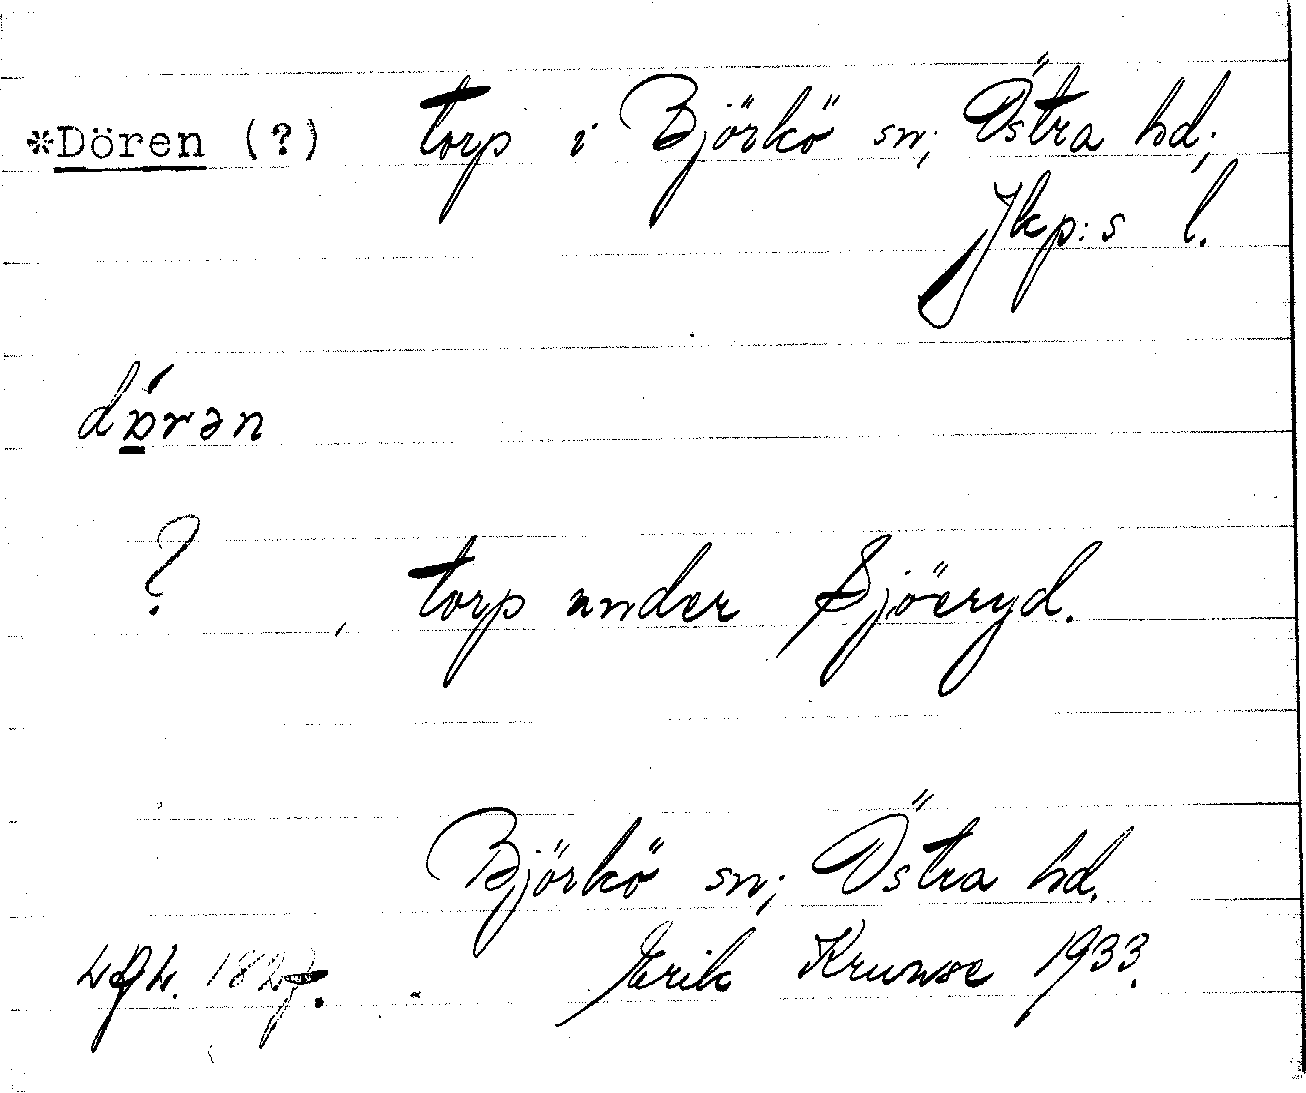 *Dören (?) torp i Björkö sn; Östra hd;
Jkp:s l.
? torp under Sjöeryd.
Björkö sn; Östra hd.
1827. Erik 1933.